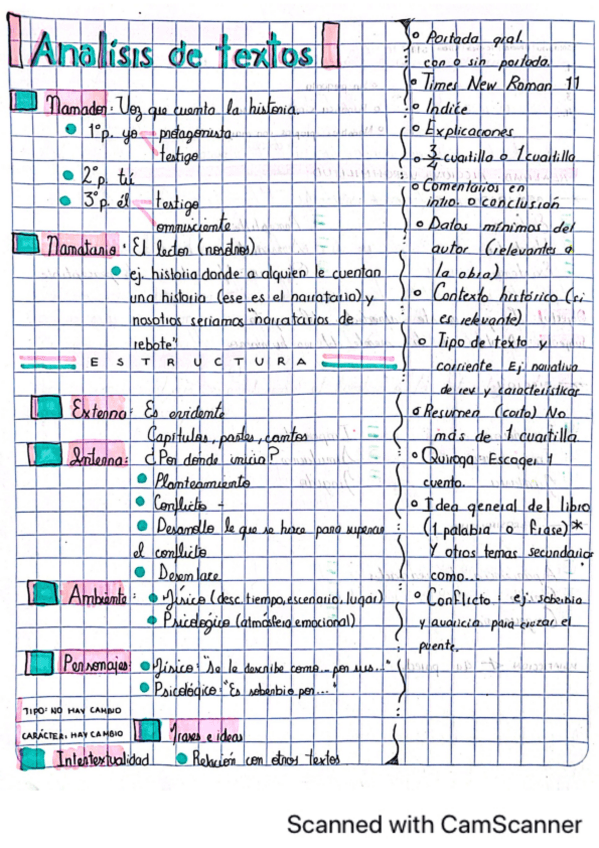 Analisis de textos
Narrador: Voz que cuenta la historia.
1°p. yo protagonista
testigo
2°p. tú
3°p. él testigo
omnisciente
Narratario: El lector (nosotros)
ej. historia donde a alguien le cuentan
una historia (ese es el narratario) y
nosotros seriamos "narratarios de
rebote"
ESTRUCTURA
Externa: Es evidente
Capítulos, partes, cantos
Interna: ¿Por donde inicia?
Planteamiento
Conflicto -
Desarrollo lo que se hace para superar
el conflicto
Desenlace
Ambiente: Físico (desc. tiempo, escenario, lugar)
Psicológico (atmósfera emocional)
Personajes: Físico: "Se le describe como... por sus..."
Psicológico: "Es soberbio por..."
TIPO: NO HAY CAMBIO
CARÁCTER: HAY CAMBIO
Frases e ideas
Intertextualidad Relación con otros textos
Portada gral.
con o sin portada.
Times New Roman 11
Indice
Explicaciones
3/4 cuartilla o 1 cuartilla
Comentarios en
intro. o conclusión
Datos mínimos del
autor (relevantes a
la obra)
Contexto histórico (si
es relevante)
Tipo de texto y
corriente Ej narrativa
de rev y características
Resumen (corto) No
más de 1 cuartilla
Quiroga Escoger 1
cuento.
Idea general del libro
(1 palabra o frase)*
Y otros temas secundarios
como...
Conflicto: ej. soberbia
y avaricia para cruzar el
puente.
Scanned with CamScanner